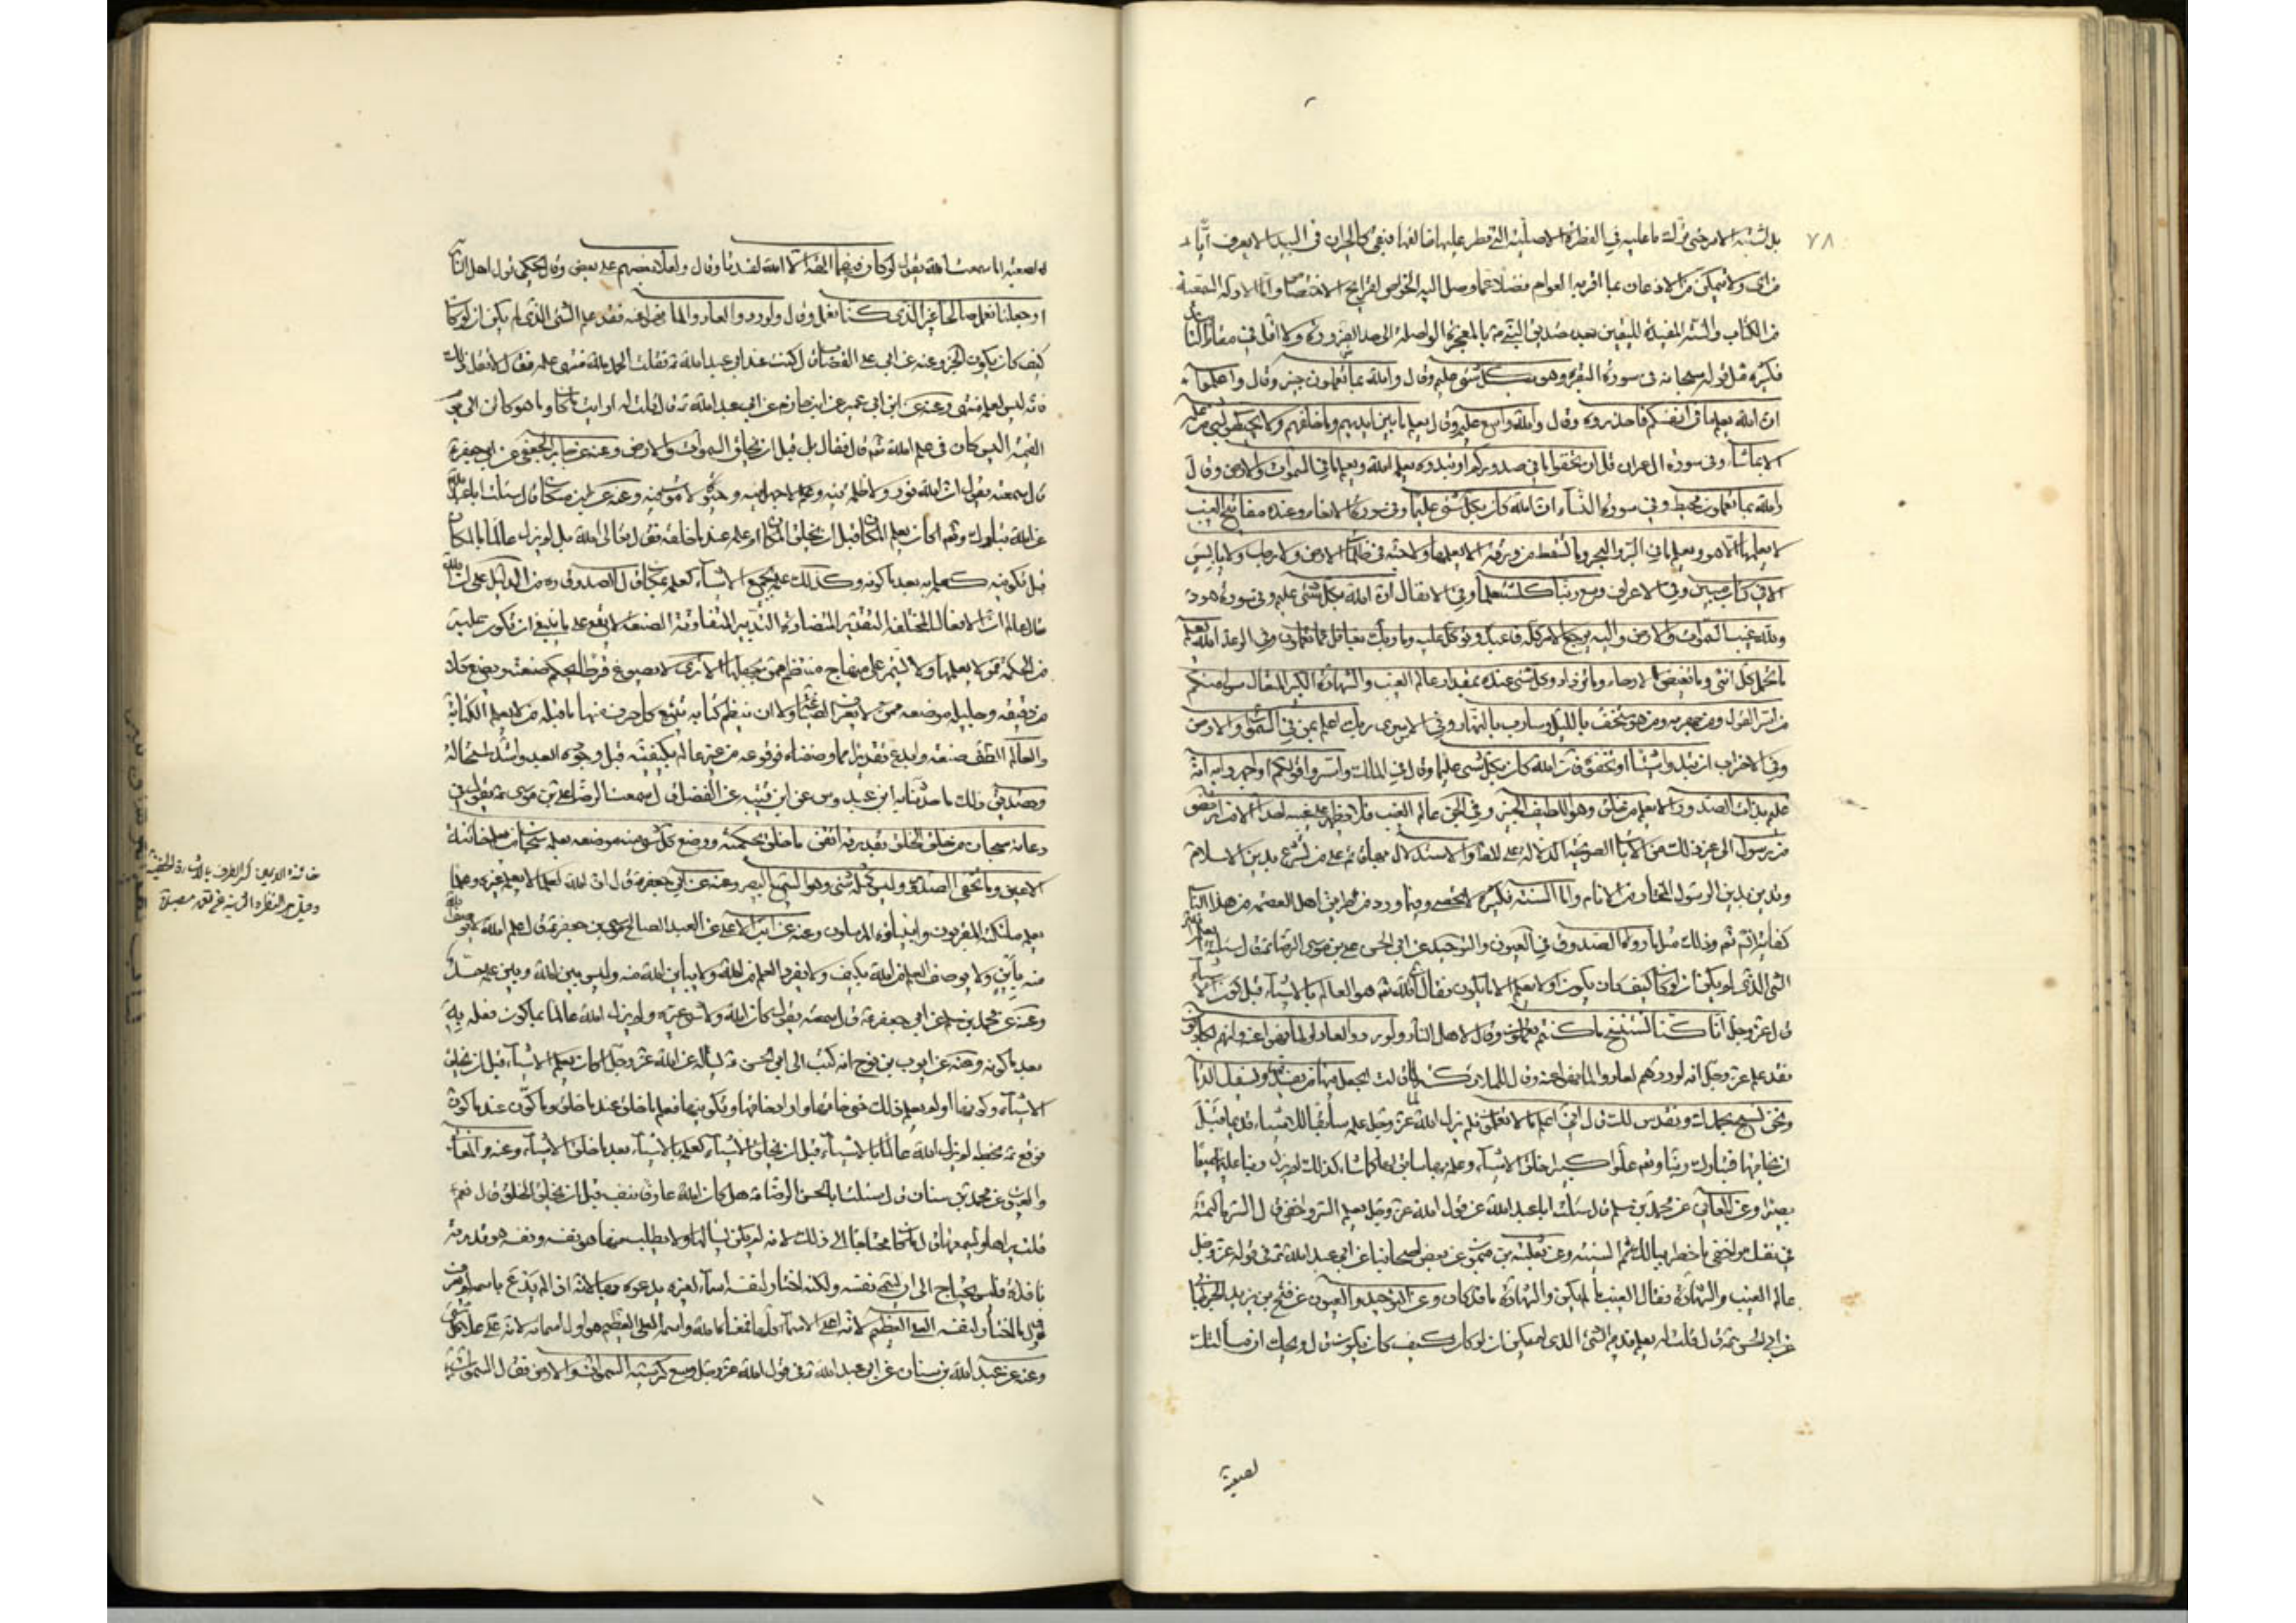 ٧٨
بل لشبه الامر حتى ترك ما عليه في الفطرة الاصلية التي فطر عليها ضائعها فبقى كالحيران في البيداء لا يعرف
من اى ولا يتمكن من الاذعان بما اقر به العوام فضلا عما وصل اليه الخواص واما الادلة السمعية
من الكتاب والسنة المفيدة لليقين بعد صدق النبي بالمعجزة الواصلة الى حد الضرورة ولا اقل في
فكثيرة مثل قوله سبحانه في سورة البقرة وهو بكل شئ عليم وقال والله بما تعملون خبير وقال واعلموا
ان الله يعلم ما في انفسكم فاحذروه وقال والله واسع عليم وقال يعلم ما بين ايديهم وما خلفهم ولا يحيطون بشئ من علمه
الا بما شاء وفي سورة ال عمران قل ان تخفوا ما في صدوركم او تبدوه يعلمه الله ويعلم ما في السموات والارض وقال
والله بما تعملون محيط وفي سورة النساء ان الله كان بكل شئ عليما وفي سورة الانعام وعنده مفاتيح الغيب
لا يعلمها الا هو ويعلم ما في البر والبحر وما تسقط من ورقة الا يعلمها ولا حبة في ظلمات الارض ولا رطب ولا يابس
الا في كتاب مبين وفي الاعراف وسع ربنا كل شئ علما وفي الانفال ان الله بكل شئ عليم وفي سورة هود
ولله غيب السموات والارض واليه يرجع الامر كله فاعبده وتوكل عليه وما ربك بغافل عما تعملون وفي الرعد الله يعلم
ما تحمل كل انثى وما تغيض الارحام وما تزداد وكل شئ عنده بمقدار عالم الغيب والشهادة الكبير المتعال سواء منكم
من اسر القول ومن جهر به ومن هو مستخف بالليل وسارب بالنهار وفي الاسرى ربك اعلم بمن في السموات والارض
وفي الاحزاب ان تبدوا شيئا او تخفوه فان الله كان بكل شئ عليما وقال في الملك واسروا قولكم او اجهروا به انه
عليم بذات الصدور الا يعلم من خلق وهو اللطيف الخبير وفي الجن عالم الغيب فلا يظهر على غيبه احدا الا من ارتضى
من رسول الى غير ذلك من الايات الصريحة الدلالة على المدعا والاستدلال بها انما يتم على من تشرع بدين الاسلام
وتدين بدين الرسول المختار من الانام واما السنة فكثيرة لا تحصى وفيما ورد من طريق اهل العصمة من هذا الباب
كفاية اتم تم وذلك مثل ما رواه الصدوق في العيون والتوحيد عن ابي الحسن علي بن موسى الرضا قال سئلته
الشئ الذي لم يكن ان لو كان كيف كان يكون او لا يعلم الا ما يكون فقال ان الله هو العالم بالاشياء قبل كون الاشياء
قال عز وجل انا كنا نستنسخ ما كنتم تعملون وقال لاهل النار ولو ردوا لعادوا لما نهوا عنه وانهم لكاذبون
فقد علم عز وجل انه لو ردهم لعادوا لما نهوا عنه وقال للملائكة لما قالت اتجعل فيها من يفسد فيها ويسفك الدماء
ونحن نسبح بحمدك ونقدس لك قال اني اعلم ما لا تعلمون فلم يزل الله عز وجل علمه سابقا للاشياء قديما قبل
ان يخلقها فتبارك ربنا وتعالى علوا كبيرا خلق الاشياء وعلمه بها سابق لها كما شاء كذلك لم يزل ربنا عليما سميعا
بصيرا وعن المعاني عن محمد بن مسلم قال سئلت ابا عبد الله عن قول الله عز وجل يعلم السر واخفى قال السر ما كتمته
في نفسك واخفى ما خطر ببالك ثم انسيته وعن ثعلبة بن ميمون عن بعض اصحابنا عن ابي عبد الله في قوله عز وجل
عالم الغيب والشهادة فقال الغيب ما لم يكن والشهادة ما قد كان وعن التوحيد والعيون عن فتح بن يزيد الجرجاني
عن ابي الحسن قال قلت له يعلم القديم الشئ الذي لم يكن ان لو كان كيف كان يكون قال ويحك ان مسألتك
لصعبة
لصعبة اما سمعت الله يقول لو كان فيهما الهة الا الله لفسدتا وقال ولعلا بعضهم على بعض وقال يحكي قول اهل النار
ارجعنا نعمل صالحا غير الذي كنا نعمل وقال ولو ردوا لعادوا لما نهوا عنه فقد علم الشئ الذي لم يكن ان لو كان
كيف كان يكون الخبر وعنه عن ابي علي القصاب قال كنت عند ابي عبد الله فقلت الحمد لله منتهى علمه فقال لا تقل ذلك
فانه ليس لعلمه منتهى وعنه عن ابن ابي عمير عن ابن حازم عن ابي عبد الله قال قلت له ارايت ما كان وما هو كائن الى يوم
القيمة اليس كان في علم الله قال فقال بلى قبل ان يخلق السموات والارض وعنه عن جابر الجعفي عن ابي جعفر
قال سمعته يقول ان الله نور لا ظلمة فيه وعلم لا جهل فيه وحيوة لا موت فيه وعنه عن ابن مسكان قال سألت ابا عبد الله
عن الله تبارك وتعالى اكان يعلم المكان قبل ان يخلق المكان او علمه عند ما خلقه فقال تعالى الله بل لم يزل عالما بالمكان
قبل تكوينه كعلمه به بعد ما كونه وكذلك علمه بجميع الاشياء كعلمه بالمكان قال الصدوق ره من الدليل على ان الله
تعالى عالم ان الافعال المختلفة التقدير المتضادة التدبير المتفاوتة الصنعة لا يقع على ما ينبغي ان تكون عليه
من الحكمة ممن لا يعلمها ولا يستمر على منهاج منتظم ممن يجهلها الا ترى لا يصوغ قرطا يحكم صنعته ويضع كلا
من دقيقه وجليله موضعه ممن لا يعرف الصياغة ولا ان ينتظم كتابة يتبع كل حرف منها ما قبله من لا يعلم الكتابة
والعالم الطف صنعة وابدع تقديرا مما وصفناه فوقوعه من غير عالم بكيفيته قبل وجوده ابعد واشد استحالة
وتصديق ذلك ما حدثنا به ابن عبدوس عن ابن قتيبة عن الفضل قال سمعت الرضا علي بن موسى يقول في
دعائه سبحان من خلق الخلق بقدرته اتقن ما خلق بحكمته ووضع كل شئ منه موضعه بعلمه سبحان من يعلم خائنة
الاعين وما تخفى الصدور وليس كمثله شئ وهو السميع البصير وعنه عن ابي جعفر قال ان لله لعلما لا يعلمه غيره وعلما
يعلمه ملئكته المقربون وانبياؤه المرسلون وعنه عن عبد الاعلى عن العبد الصالح موسى بن جعفر قال علم الله لا يوصف
منه باين ولا يوصف العلم من الله بكيف ولا يفرد العلم من الله ولا يباين الله منه وليس بين الله وبين علمه حد
وعنه عن محمد بن مسلم عن ابي جعفر قال سمعته يقول كان الله ولا شئ غيره ولم يزل الله عالما بما كون فعلمه به
بعد ما كونه وعنه عن ايوب بن نوح انه كتب الى ابي الحسن يسأله عن الله عز وجل اكان يعلم الاشياء قبل ان يخلق
الاشياء وكونها او لم يعلم ذلك حتى خلقها واراد خلقها وتكوينها فعلم ما خلق عند ما خلق وما كون عند ما كون
فوقع بخطه لم يزل الله عالما بالاشياء قبل ان يخلق الاشياء كعلمه بالاشياء بعد ما خلق الاشياء وعنه والمعاني
والعيون عن محمد بن سنان قال سئلت ابا الحسن الرضا هل كان الله عارفا بنفسه قبل ان يخلق الخلق قال نعم
قلت يراها ويسمعها قال ما كان محتاجا الى ذلك لانه لم يكن يسألها ولا يطلب منها هو نفسه ونفسه هو قدرته
نافذة فليس يحتاج الى ان يسمي نفسه ولكنه اختار لنفسه اسماء لغيره يدعوه بها لانه اذا لم يدع باسمه لم يعرف
فاول ما اختار لنفسه العلي العظيم لانه اعلى الاسماء كلها فمعناه الله واسمه العلي العظيم هو اول اسمائه لانه علي علا كل شئ
وعنه عن عبد الله بن سنان عن ابي عبد الله في قول الله عز وجل وسع كرسيه السموات والارض فقال السموات